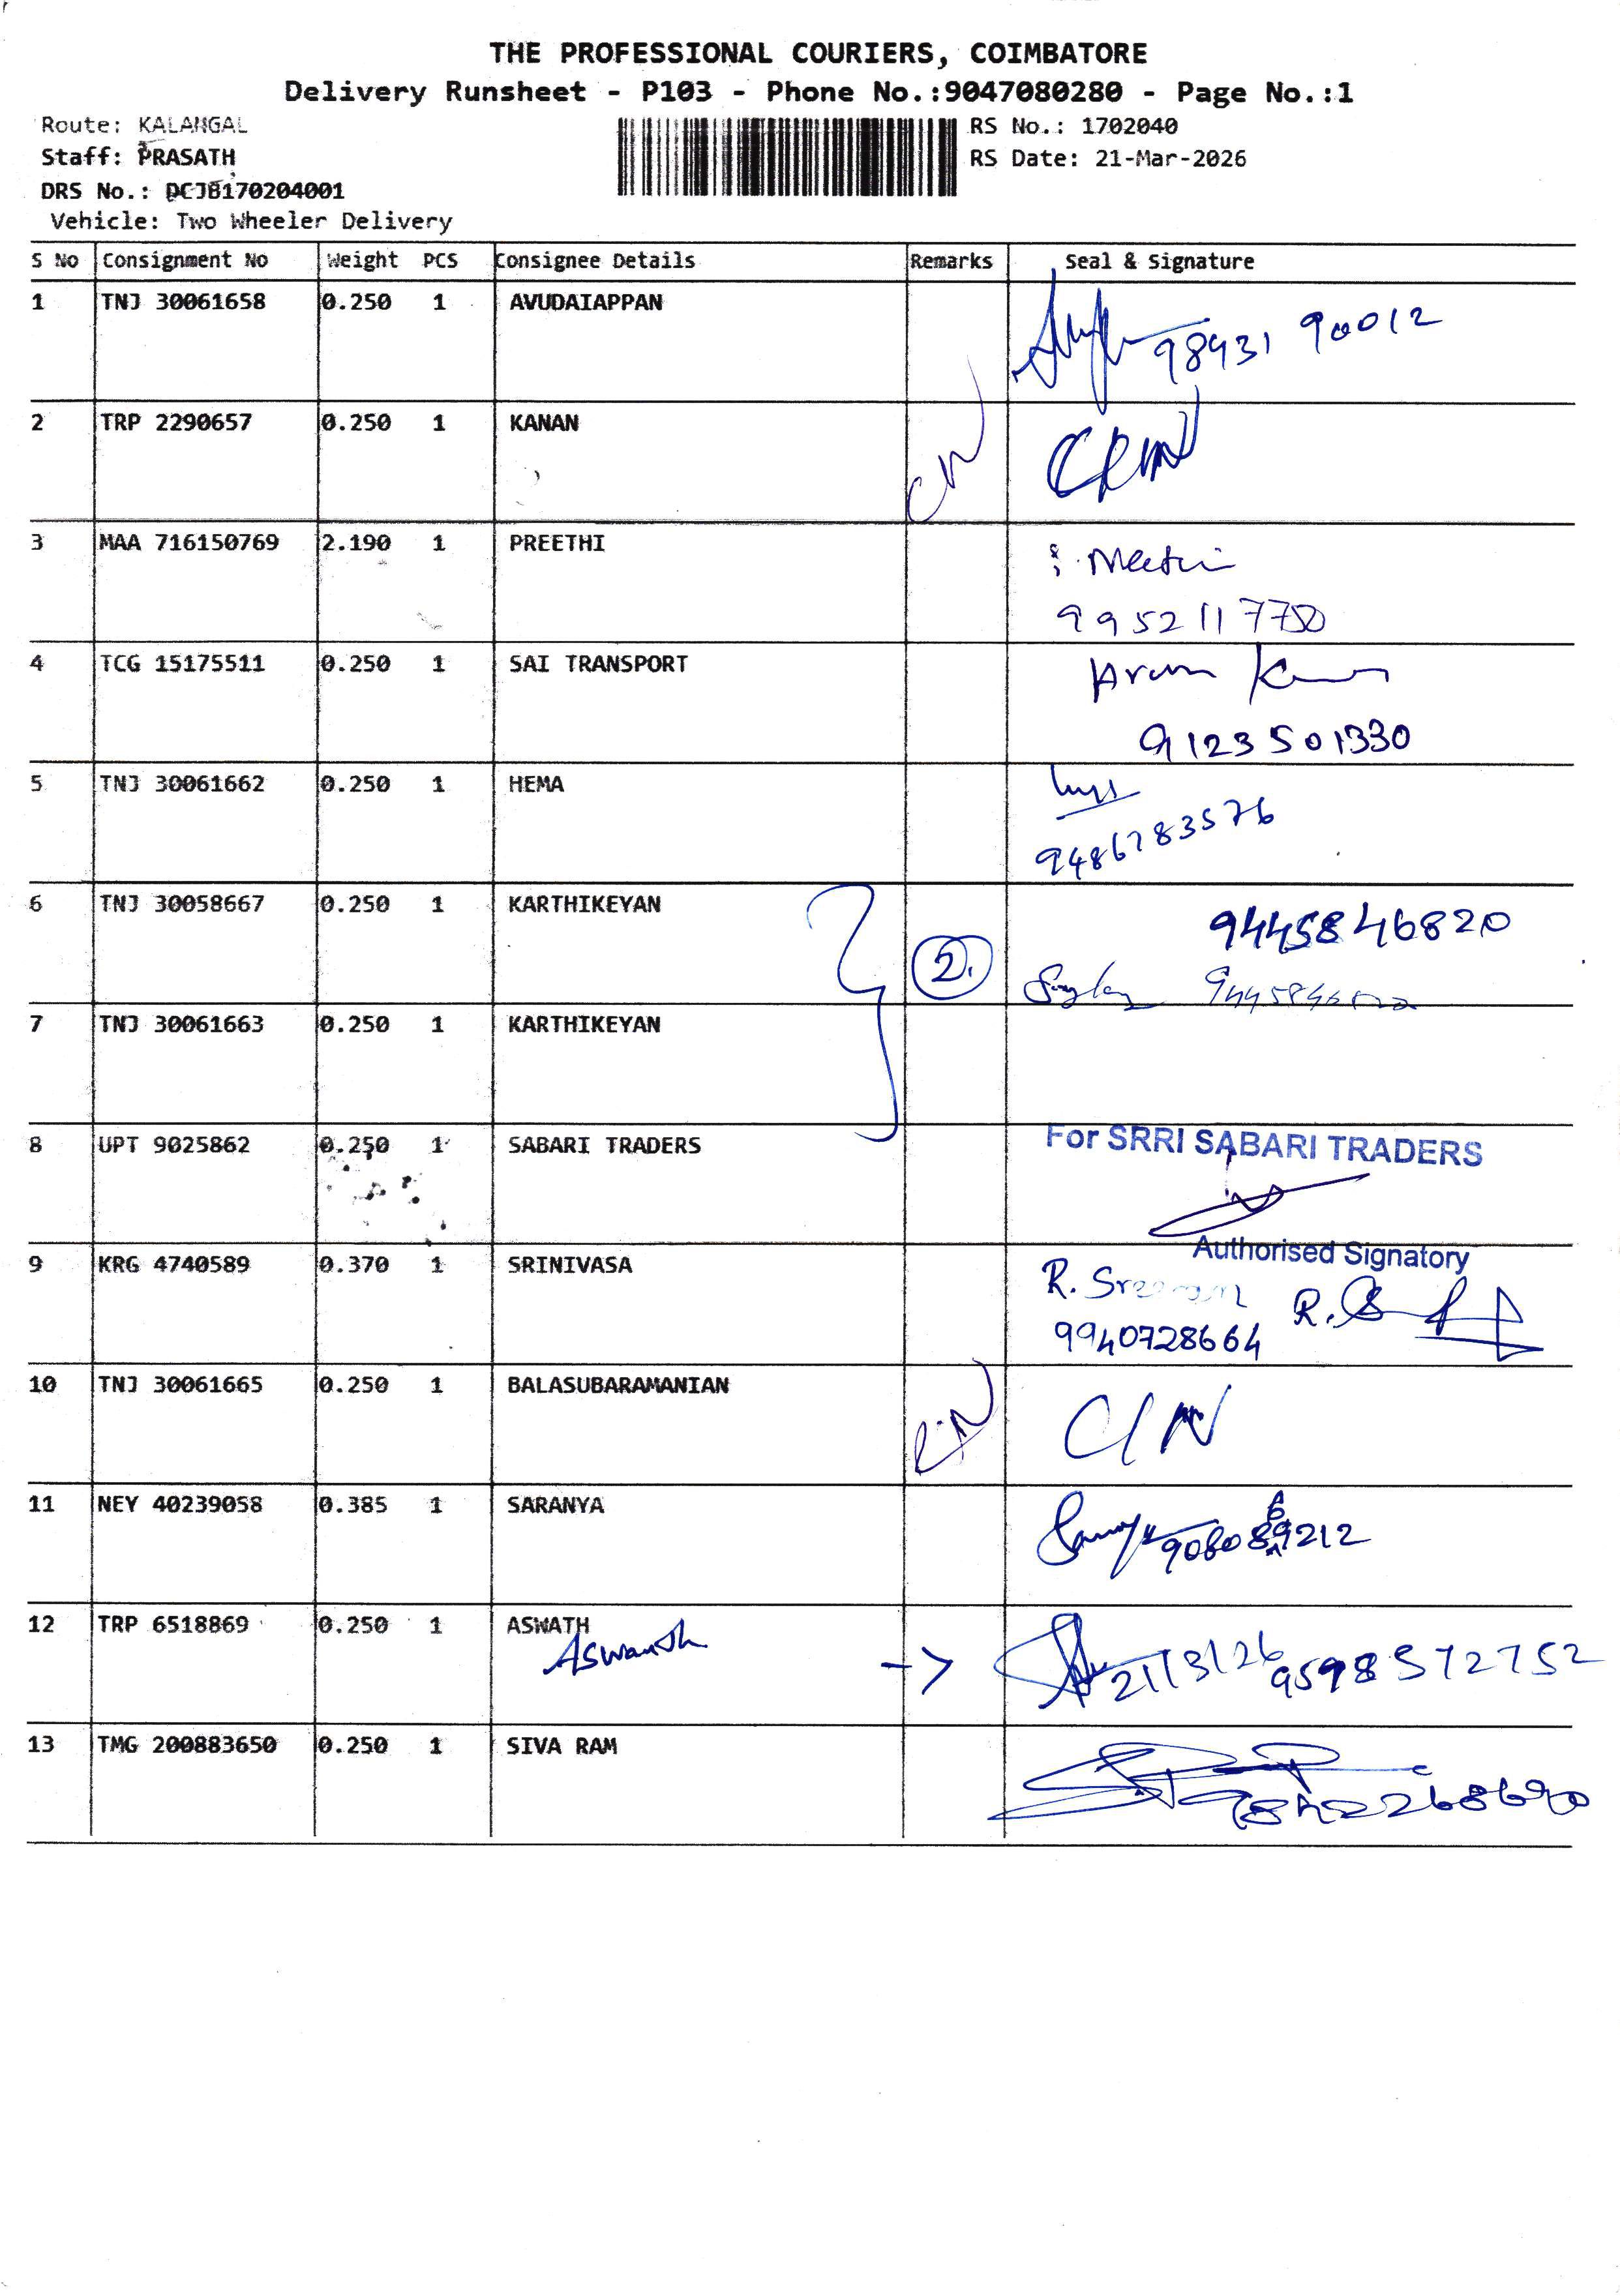 THE PROFESSIONAL COURIERS, COIMBATORE
Delivery Runsheet - P103 - Phone No.:9047080280 - Page No.:1
Route: KALANGAL
Staff: PRASATH
DRS No.: DCJB170204001
Vehicle: Two Wheeler Delivery
RS No.: 1702040
RS Date: 21-Mar-2026
S No Consignment No Weight PCS Consignee Details Remarks Seal & Signature
1 TNJ 30061658 0.250 1 AVUDAIAPPAN 98431 90012
2 TRP 2290657 0.250 1 KANAN
3 MAA 716150769 2.190 1 PREETHI
9952117750
4 TCG 15175511 0.250 1 SAI TRANSPORT Arun
9123501330
5 TNJ 30061662 0.250 1 HEMA
9486783576
6 TNJ 30058667 0.250 1 KARTHIKEYAN 2. 9445846820
7 TNJ 30061663 0.250 1 KARTHIKEYAN
8 UPT 9025862 0.250 1 SABARI TRADERS For SRRI SABARI TRADERS
Authorised Signatory
9 KRG 4740589 0.370 1 SRINIVASA R.
9940728664
10 TNJ 30061665 0.250 1 BALASUBARAMANIAN
11 NEY 40239058 0.385 1 SARANYA
12 TRP 6518869 0.250 1 ASWATH
Aswanth -> 21/3/26 9598572752
13 TMG 200883650 0.250 1 SIVA RAM